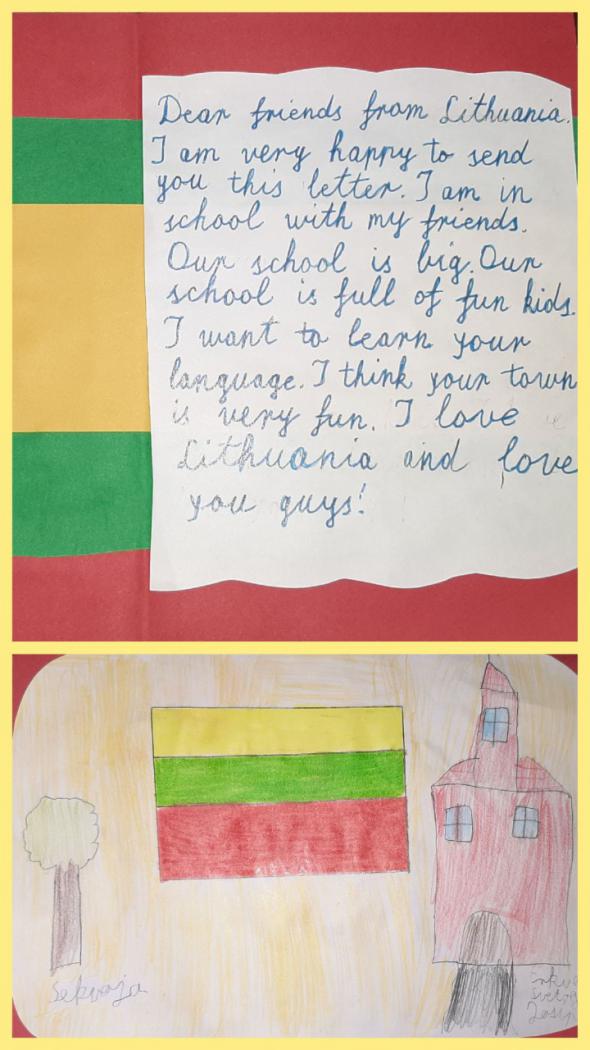 Dear friends from Lithuania.
I am very happy to send
you this letter. I am in
school with my friends.
Our school is big. Our
school is full of fun kids.
I want to learn your
language. I think your town
is very fun. I love
Lithuania and love
you guys!
Sekvoja